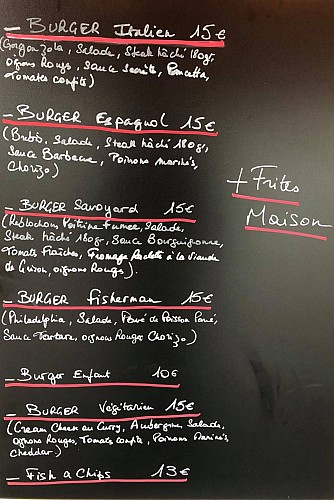 - BURGER Italien 15€
(Gorgonzola, Salade, Steak hâché 180gr,
oignons Rouges, Sauce Secrète, Pancetta,
Tomates confits)
- BURGER Espagnol 15€
(Brebis, Salade, Steak hâché 180gr,
Sauce Barbecue, Poivrons marinés,
Chorizo)
+ Frites
Maison
- BURGER Savoyard 15€
(Reblochon, Poitrine Fumée, Salade,
Steak hâché 180gr, Sauce Bourguignonne,
Tomates Fraîches, Fromage Raclette à la Viande
de Grison, oignons Rouges)
- BURGER Fisherman 15€
(Philadelphia, Salade, Pavé de Poisson Pané,
Sauce Tartare, oignons Rouges Chorizo)
- Burger Enfant 10€
- BURGER Végétarien 15€
(Cream Cheese au Curry, Aubergine, Salade,
oignons Rouges, Tomate confite, Poivrons Marinés,
Cheddar)
- Fish & Chips 13€